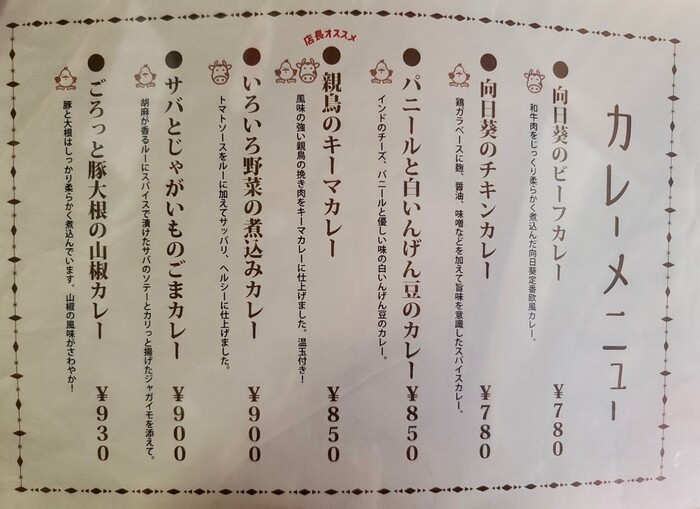 カレーメニュー
●向日葵のビーフカレー ¥780
和牛肉をじっくり柔らかく煮込んだ向日葵定番欧風カレー。
●向日葵のチキンカレー ¥780
鶏ガラベースに麹、醤油、味噌などを加えて旨味を意識したスパイスカレー。
●パニールと白いんげん豆のカレー ¥850
インドのチーズ、パニールと優しい味の白いんげん豆のカレー。
店長オススメ
●親鳥のキーマカレー ¥850
風味の強い親鳥の挽き肉をキーマカレーに仕上げました。温玉付き!
●いろいろ野菜の煮込みカレー ¥900
トマトソースをルーに加えてサッパリ、ヘルシーに仕上げました。
●サバとじゃがいものごまカレー ¥900
胡麻が香るルーにスパイスで漬けたサバのソテーとカリっと揚げたジャガイモを添えて。
●ごろっと豚大根の山椒カレー ¥930
豚と大根はしっかり柔らかく煮込んでいます。山椒の風味がさわやか!